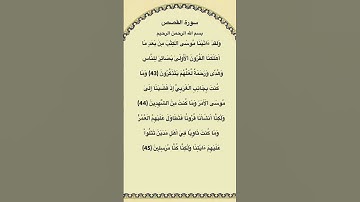 سورة القصص
بسم الله الرحمن الرحيم
وَلَقَدْ ءَاتَيْنَا مُوسَى الْكِتَٰبَ مِنْ بَعْدِ مَا
أَهْلَكْنَا الْقُرُونَ الْأُولَىٰ بَصَائِرَ لِلنَّاسِ
وَهُدًى وَرَحْمَةً لَعَلَّهُمْ يَتَذَكَّرُونَ (43) وَمَا
كُنتَ بِجَانِبِ الْغَرْبِيِّ إِذْ قَضَيْنَا إِلَىٰ
مُوسَى الْأَمْرَ وَمَا كُنتَ مِنَ الشَّٰهِدِينَ (44)
وَلَٰكِنَّا أَنشَأْنَا قُرُونًا فَتَطَاوَلَ عَلَيْهِمُ الْعُمُرُ
وَمَا كُنتَ ثَاوِيًا فِي أَهْلِ مَدْيَنَ تَتْلُوا
عَلَيْهِمْ ءَايَٰتِنَا وَلَٰكِنَّا كُنَّا مُرْسِلِينَ (45)